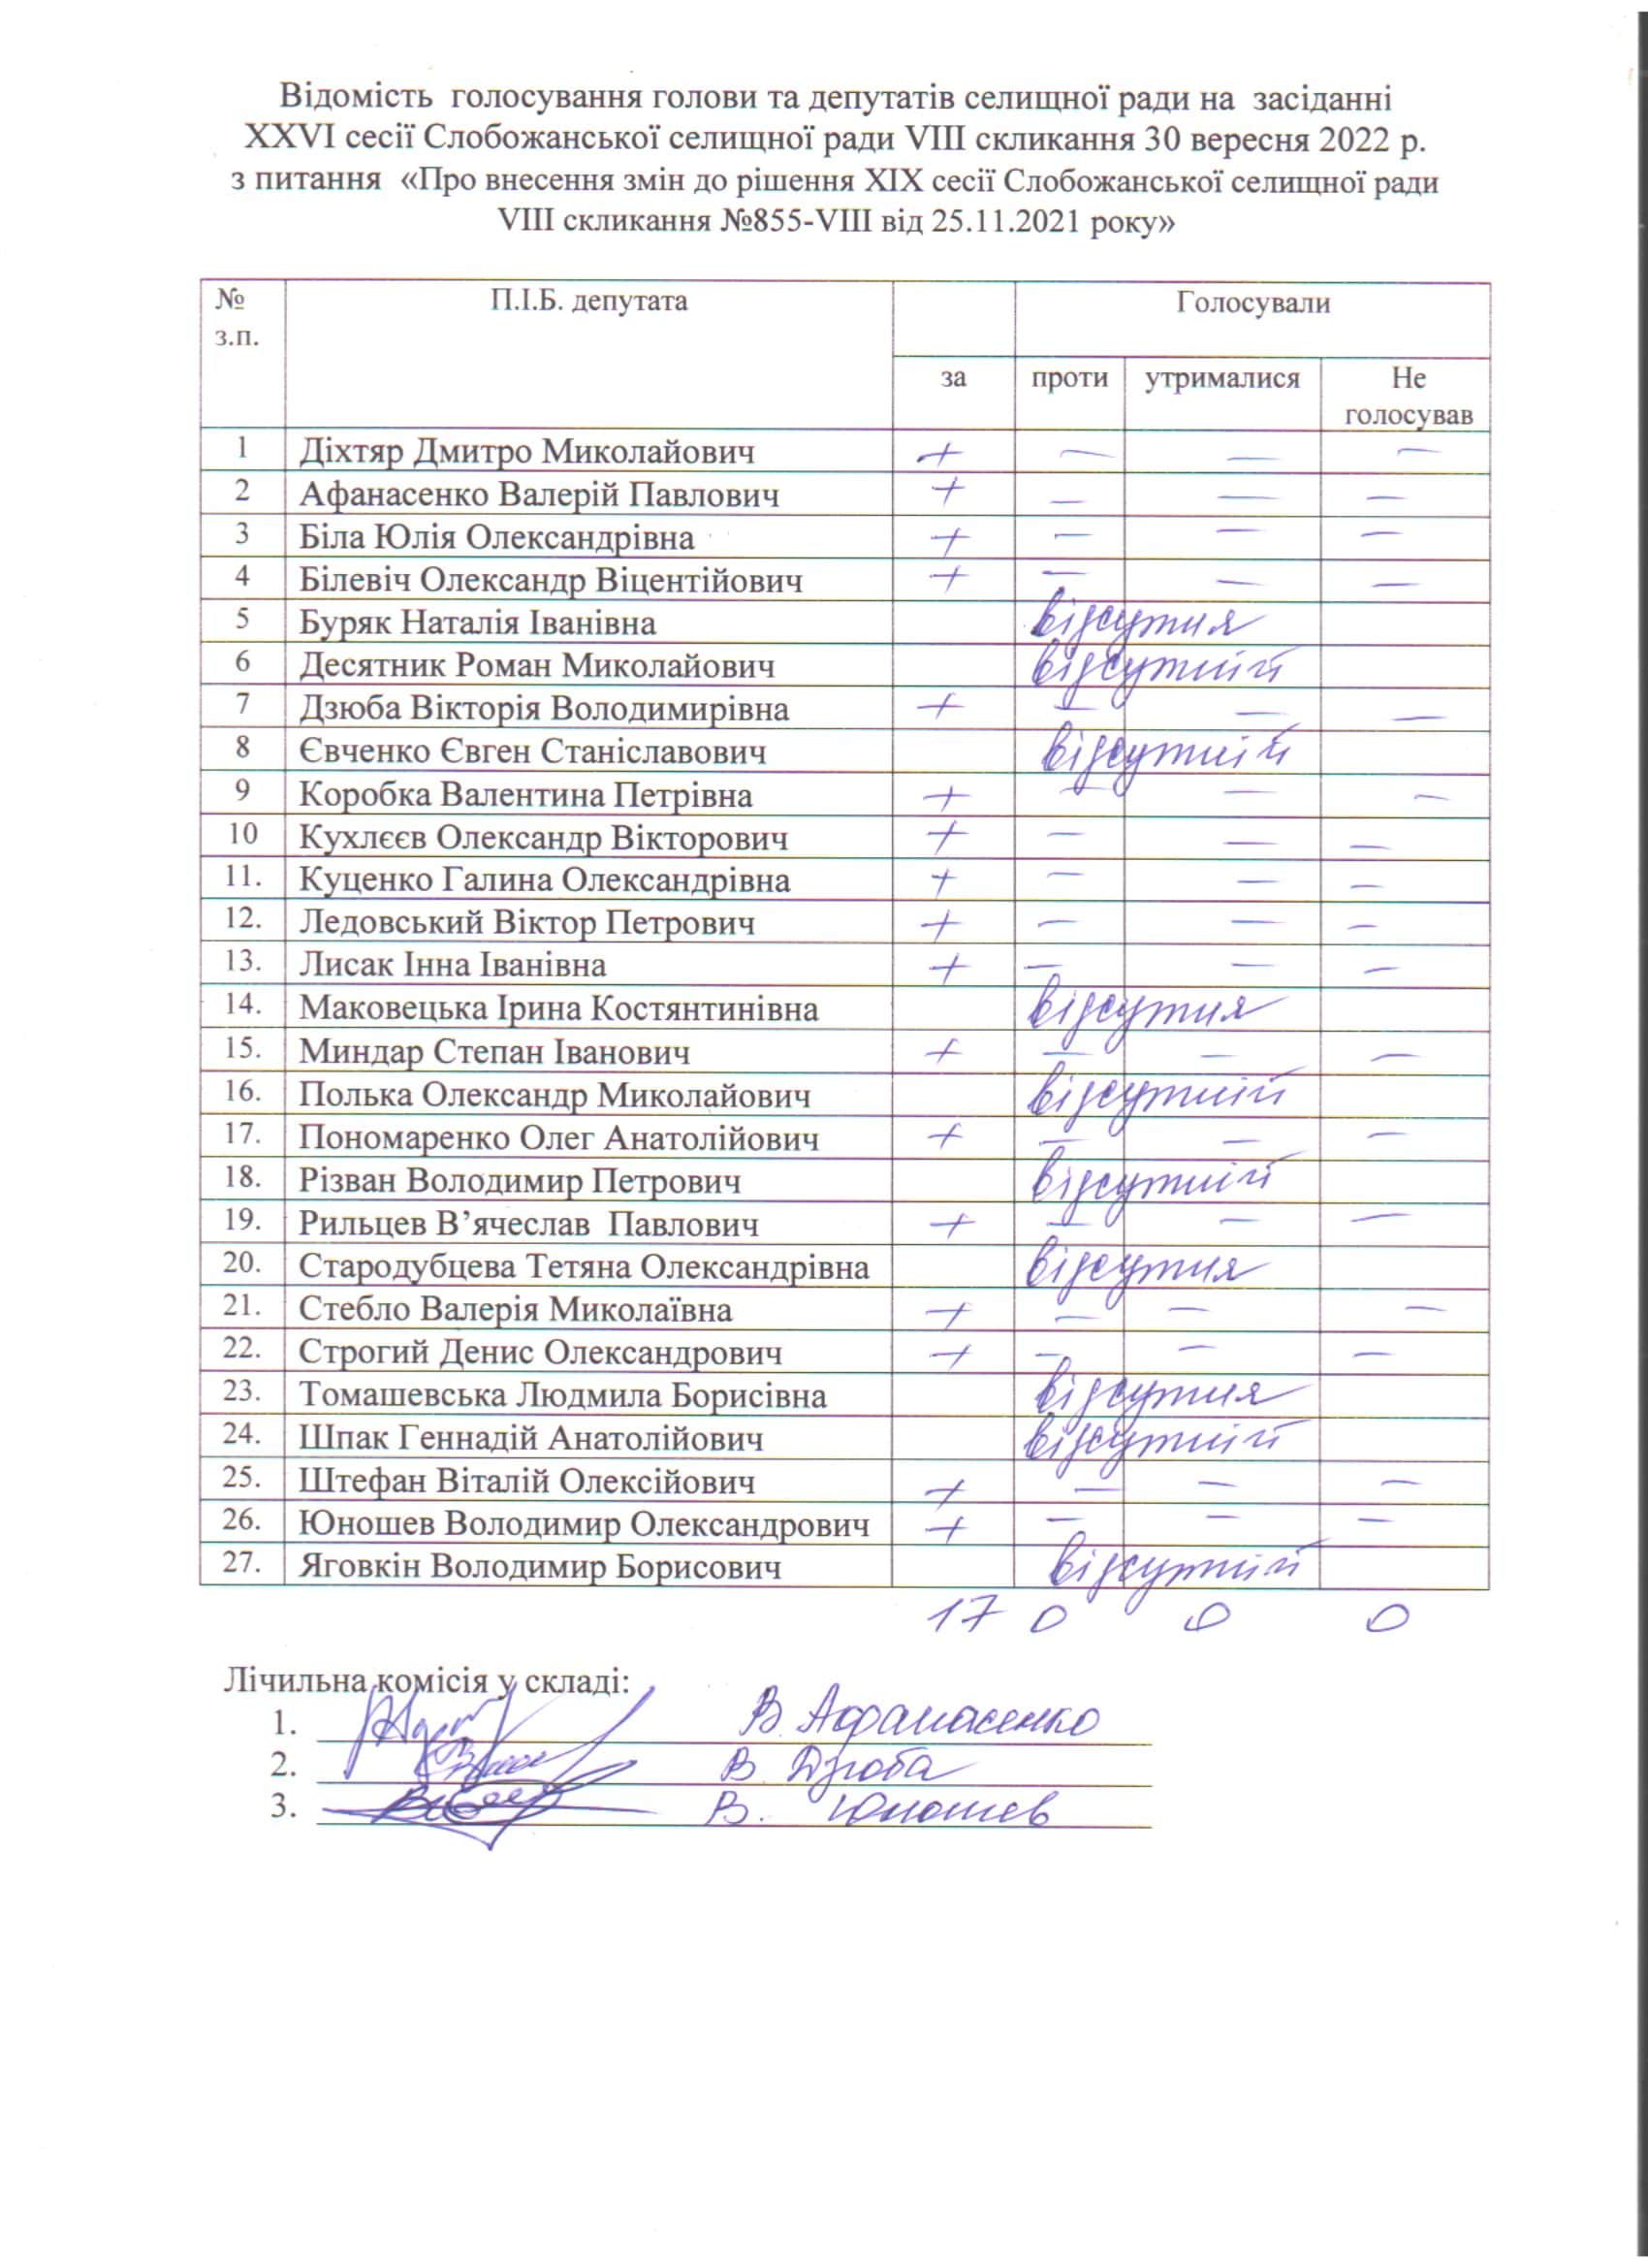 Відомість голосування голови та депутатів селищної ради на засіданні
XXVI сесії Слобожанської селищної ради VIII скликання 30 вересня 2022 р.
з питання «Про внесення змін до рішення XIX сесії Слобожанської селищної ради
VIII скликання №855-VIII від 25.11.2021 року»
№ з.п. П.І.Б. депутата Голосували
за проти утрималися Не голосував
1 Діхтяр Дмитро Миколайович + — — —
2 Афанасенко Валерій Павлович + — — —
3 Біла Юлія Олександрівна + — — —
4 Білевіч Олександр Віцентійович + — — —
5 Буряк Наталія Іванівна відсутня
6 Десятник Роман Миколайович відсутній
7 Дзюба Вікторія Володимирівна + — — —
8 Євченко Євген Станіславович відсутній
9 Коробка Валентина Петрівна + — — —
10 Кухлєєв Олександр Вікторович + — — —
11. Куценко Галина Олександрівна + — — —
12. Ледовський Віктор Петрович + — — —
13. Лисак Інна Іванівна + — — —
14. Маковецька Ірина Костянтинівна відсутня
15. Миндар Степан Іванович + — — —
16. Полька Олександр Миколайович відсутній
17. Пономаренко Олег Анатолійович + — — —
18. Різван Володимир Петрович відсутній
19. Рильцев В’ячеслав Павлович + — — —
20. Стародубцева Тетяна Олександрівна відсутня
21. Стебло Валерія Миколаївна + — — —
22. Строгий Денис Олександрович + — — —
23. Томашевська Людмила Борисівна відсутня
24. Шпак Геннадій Анатолійович відсутній
25. Штефан Віталій Олексійович + — — —
26. Юношев Володимир Олександрович + — — —
27. Яговкін Володимир Борисович відсутній
17 0 0 0
Лічильна комісія у складі:
1. В. Афанасенко
2. В. Дзюба
3. В. Юношев